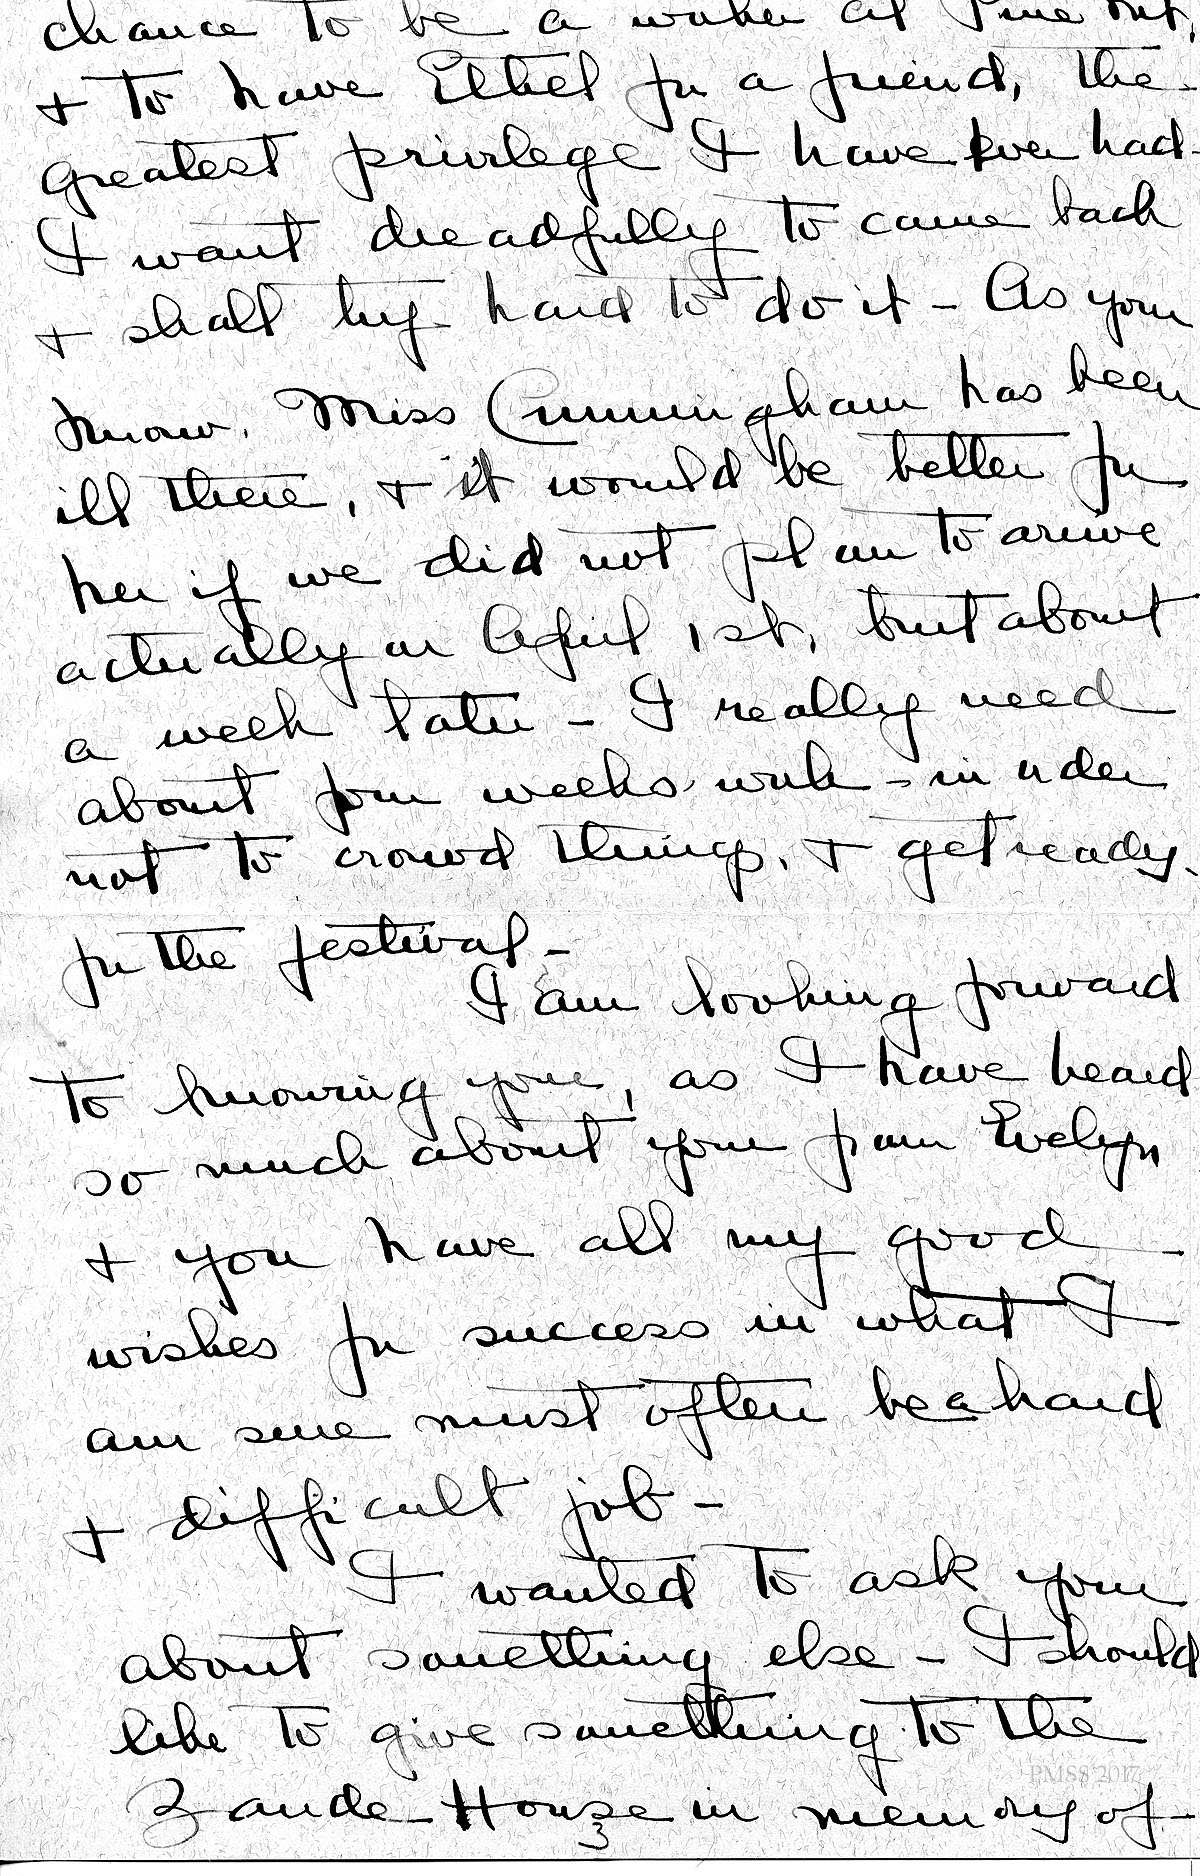 chance to be a worker at Pine Mt.
+ to have Ethel for a friend, the
greatest privilege I have ever had -
I want dreadfully to come back
+ shall try hard to do it - As you
know. Miss Cunningham has been
ill there, + it would be better for
her if we did not plan to arrive
actually on April 1st, but about
a week later - I really need
about four weeks work - in order
not to crowd things, + get ready
for the festival -
I am looking forward
to knowing you, as I have heard
so much about you from Evelyn
+ you have all my good
wishes for success in what I
am sure must often be a hard
+ difficult job -
I wanted to ask you
about something else - I should
like to give something to the
PMSS 2017
Zande House in memory of -
3